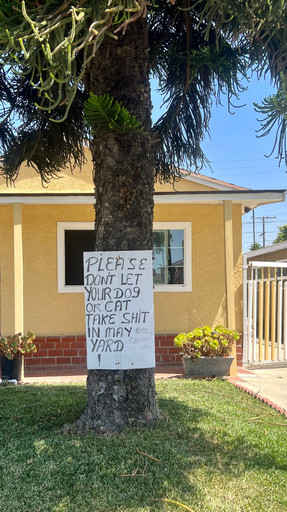 PLEASE
DONT LET
YOUR DOg
OR CAT
TAKE SHiT
IN MAY
YARD
!